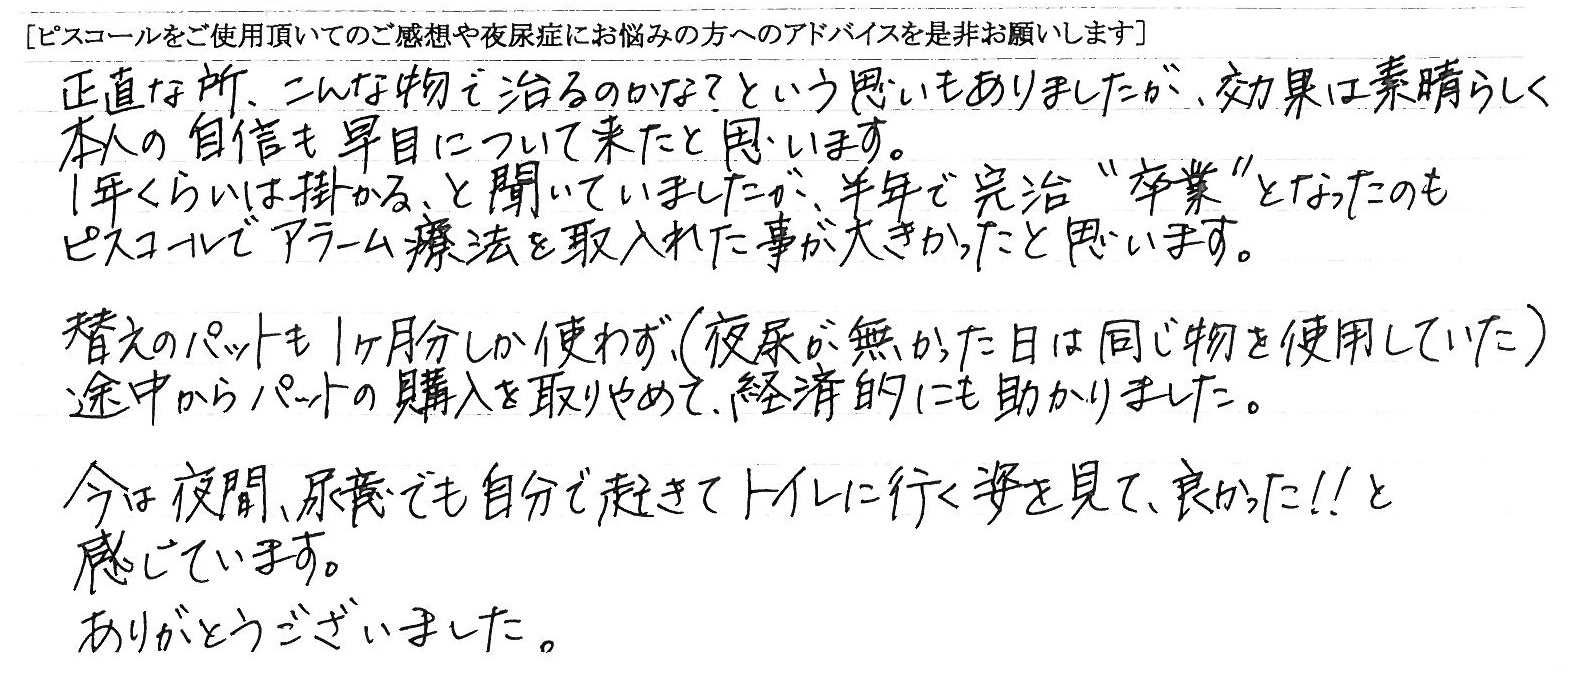 [ピスコールをご使用頂いてのご感想や夜尿症にお悩みの方へのアドバイスを是非お願いします]
正直な所、こんな物で治るのかな?という思いもありましたが、効果は素晴らしく
本人の自信も早目について来たと思います。
1年くらいは掛かる、と聞いていましたが、半年で完治"卒業"となったのも
ピスコールでアラーム療法を取入れた事が大きかったと思います。
替えのパットも1ヶ月分しか使わず、(夜尿が無かった日は同じ物を使用していた)
途中からパットの購入を取りやめて、経済的にも助かりました。
今は夜間、尿意でも自分で起きてトイレに行く姿を見て、良かった!!と
感じています。
ありがとうございました。